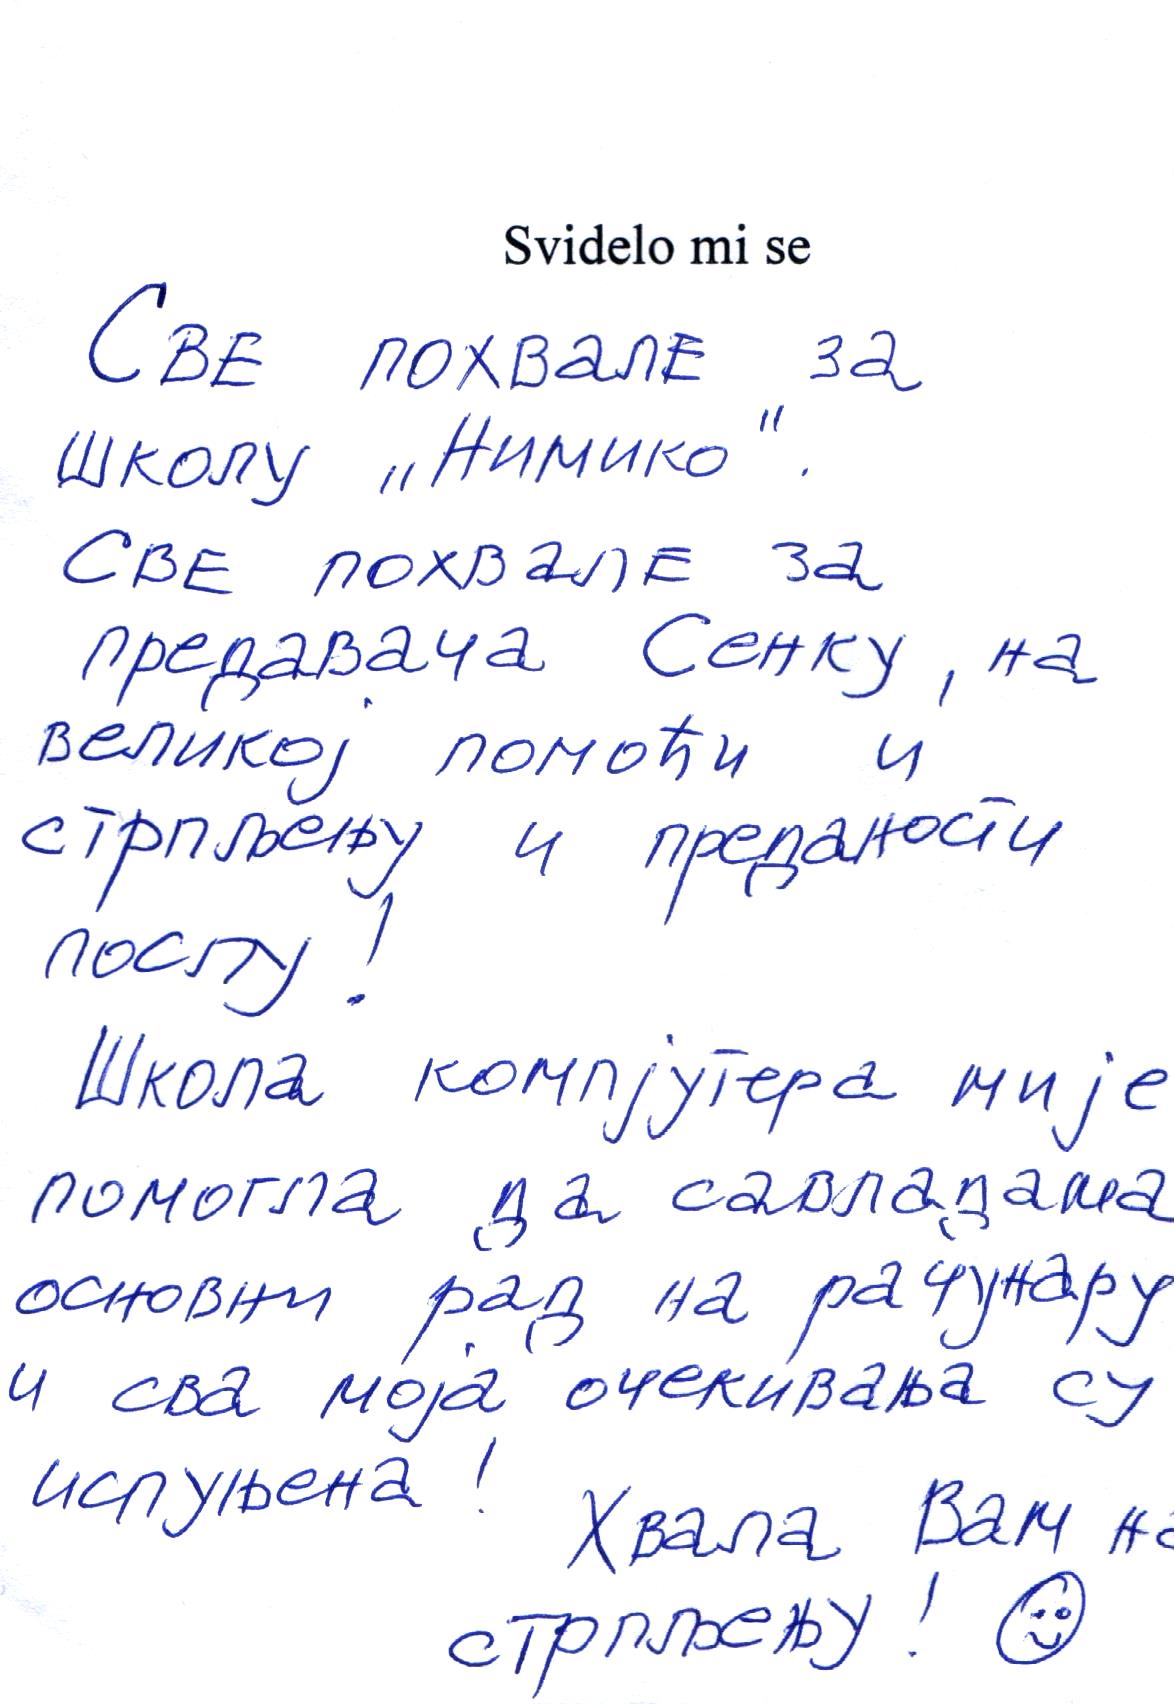 Svidelo mi se
Све похвале за
школу „Нимико".
Све похвале за
предавача Сенку, на
великој помоћи и
стрпљењу и преданости
послу!
Школа компјутера ми је
помогла да савладама
основни рад на рачунару
и сва моја очекивања су
испуњена!
Хвала Вам на
стрпљењу!